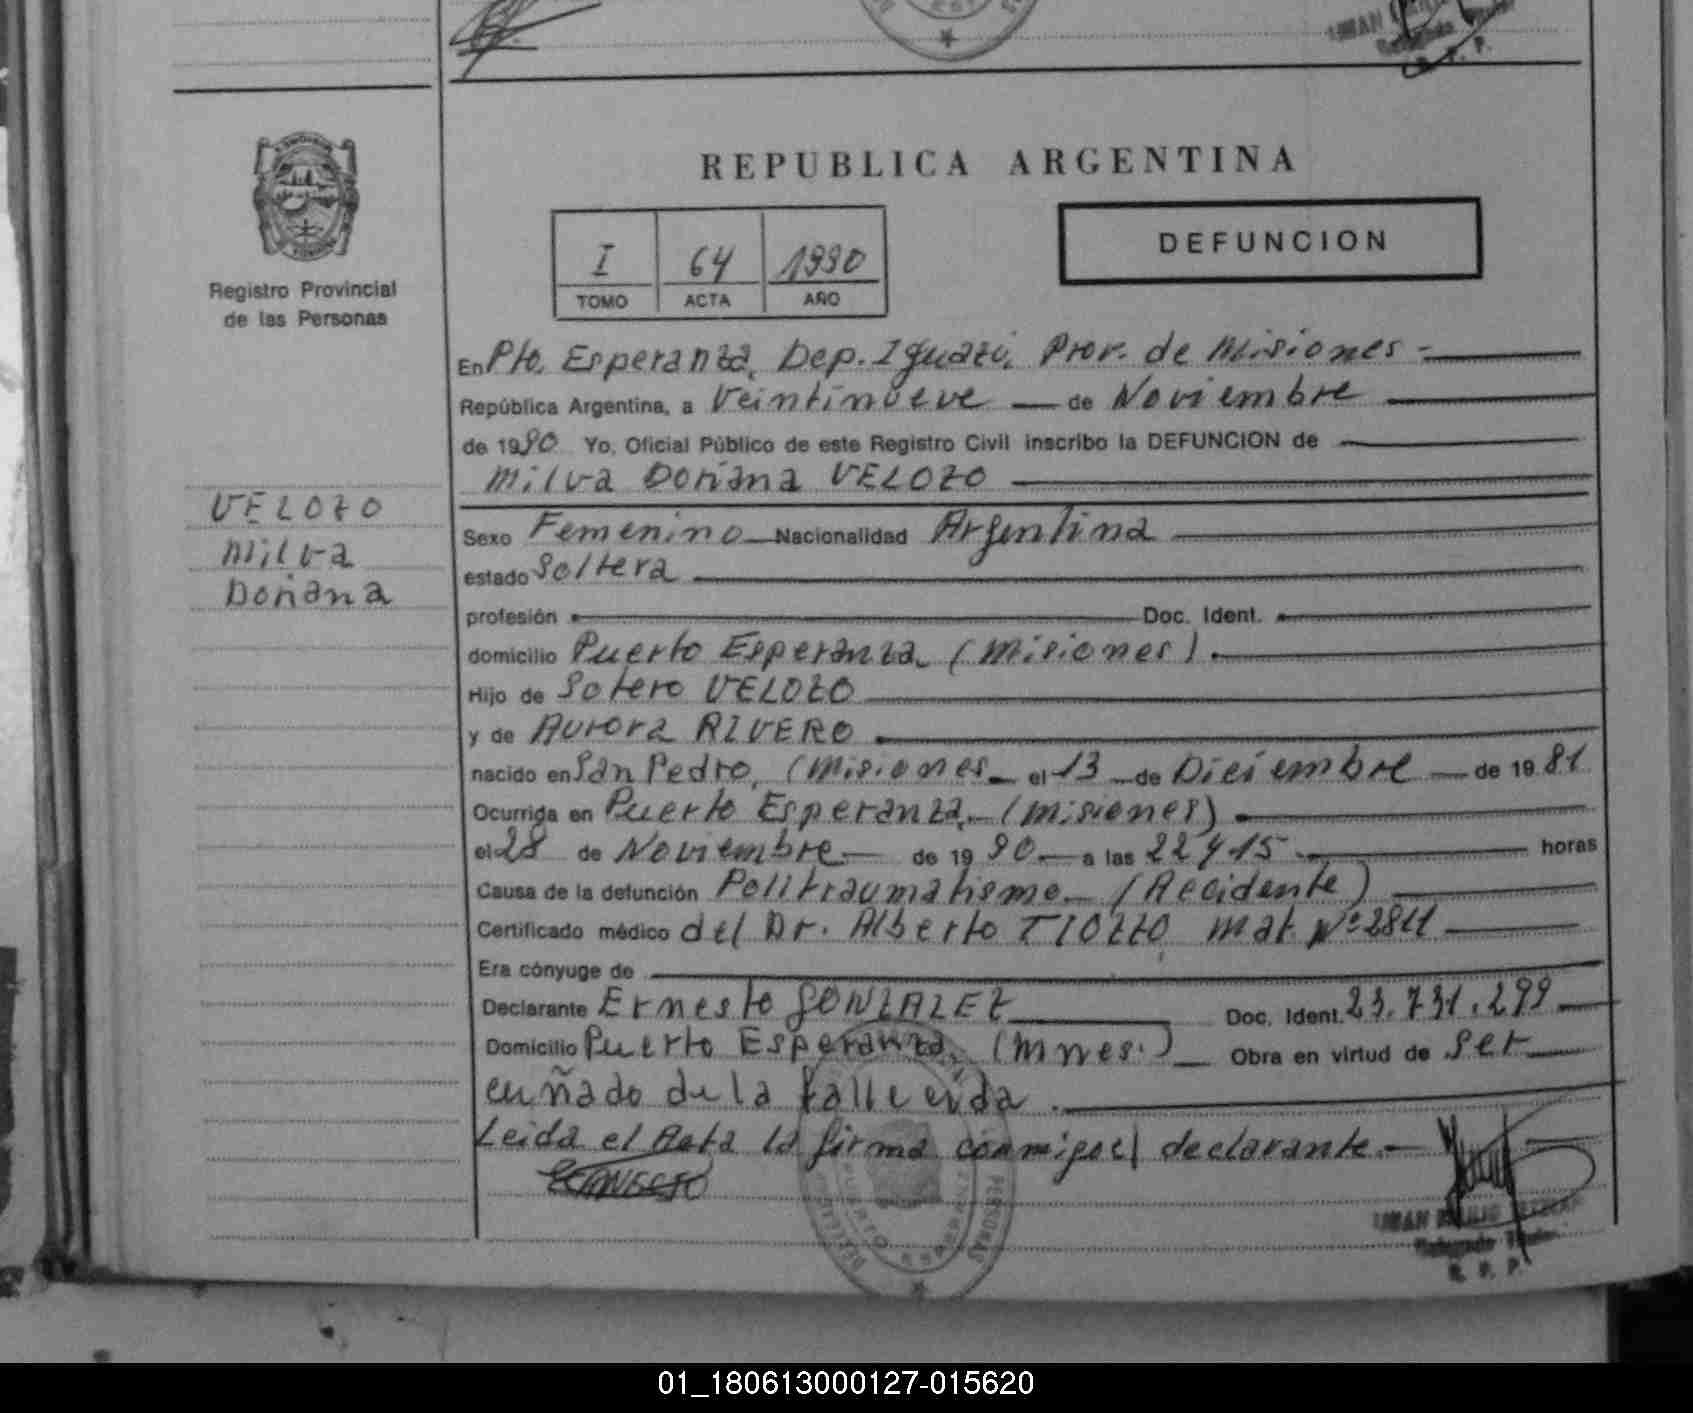 REPUBLICA ARGENTINA
DEFUNCION
I 64 1990
TOMO ACTA AÑO
Registro Provincial
de las Personas
En Pto. Esperanza, Dep. Iguazú, Prov. de Misiones -
República Argentina, a Veintinueve de Noviembre
de 1990 Yo, Oficial Público de este Registro Civil inscribo la DEFUNCION de
Milva Doriana VELOZO
VELOZO
Milva
Doriana
Sexo Femenino Nacionalidad Argentina
estado Soltera
profesión Doc. Ident.
domicilio Puerto Esperanza, (Misiones).
Hijo de Sotero VELOZO
y de Aurora RIVERO
nacido en San Pedro, (Misiones el 13 de Diciembre de 1981
Ocurrida en Puerto Esperanza, (Misiones)
el 28 de Noviembre de 1990 a las 22 y 15 horas
Causa de la defunción Politraumatismo (Accidente)
Certificado médico del Dr. Alberto TIOZZO Mat. Nº 2811
Era cónyuge de
Declarante Ernesto GONZALEZ Doc. Ident. 23.731.299
Domicilio Puerto Esperanza, (Mnes.) Obra en virtud de Ser
cuñado de la fallecida.
Leida el Acta la firma conmigo el declarante.-
PERSONAS
PUERTO ESPERANZA
R. P. P.
01_180613000127-015620